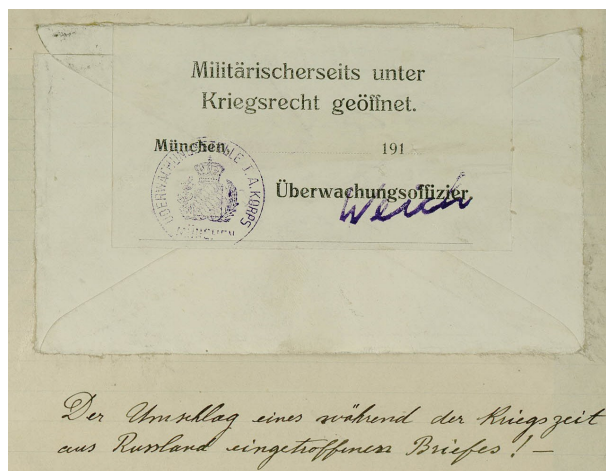 Militärischerseits unter
Kriegsrecht geöffnet.
München 191
ÜBERWACHUNGSSTELLE I. A. KORPS
MÜNCHEN
Überwachungsoffizier
Der Umschlag eines während der Kriegszeit
aus Russland eingetroffenen Briefes! —